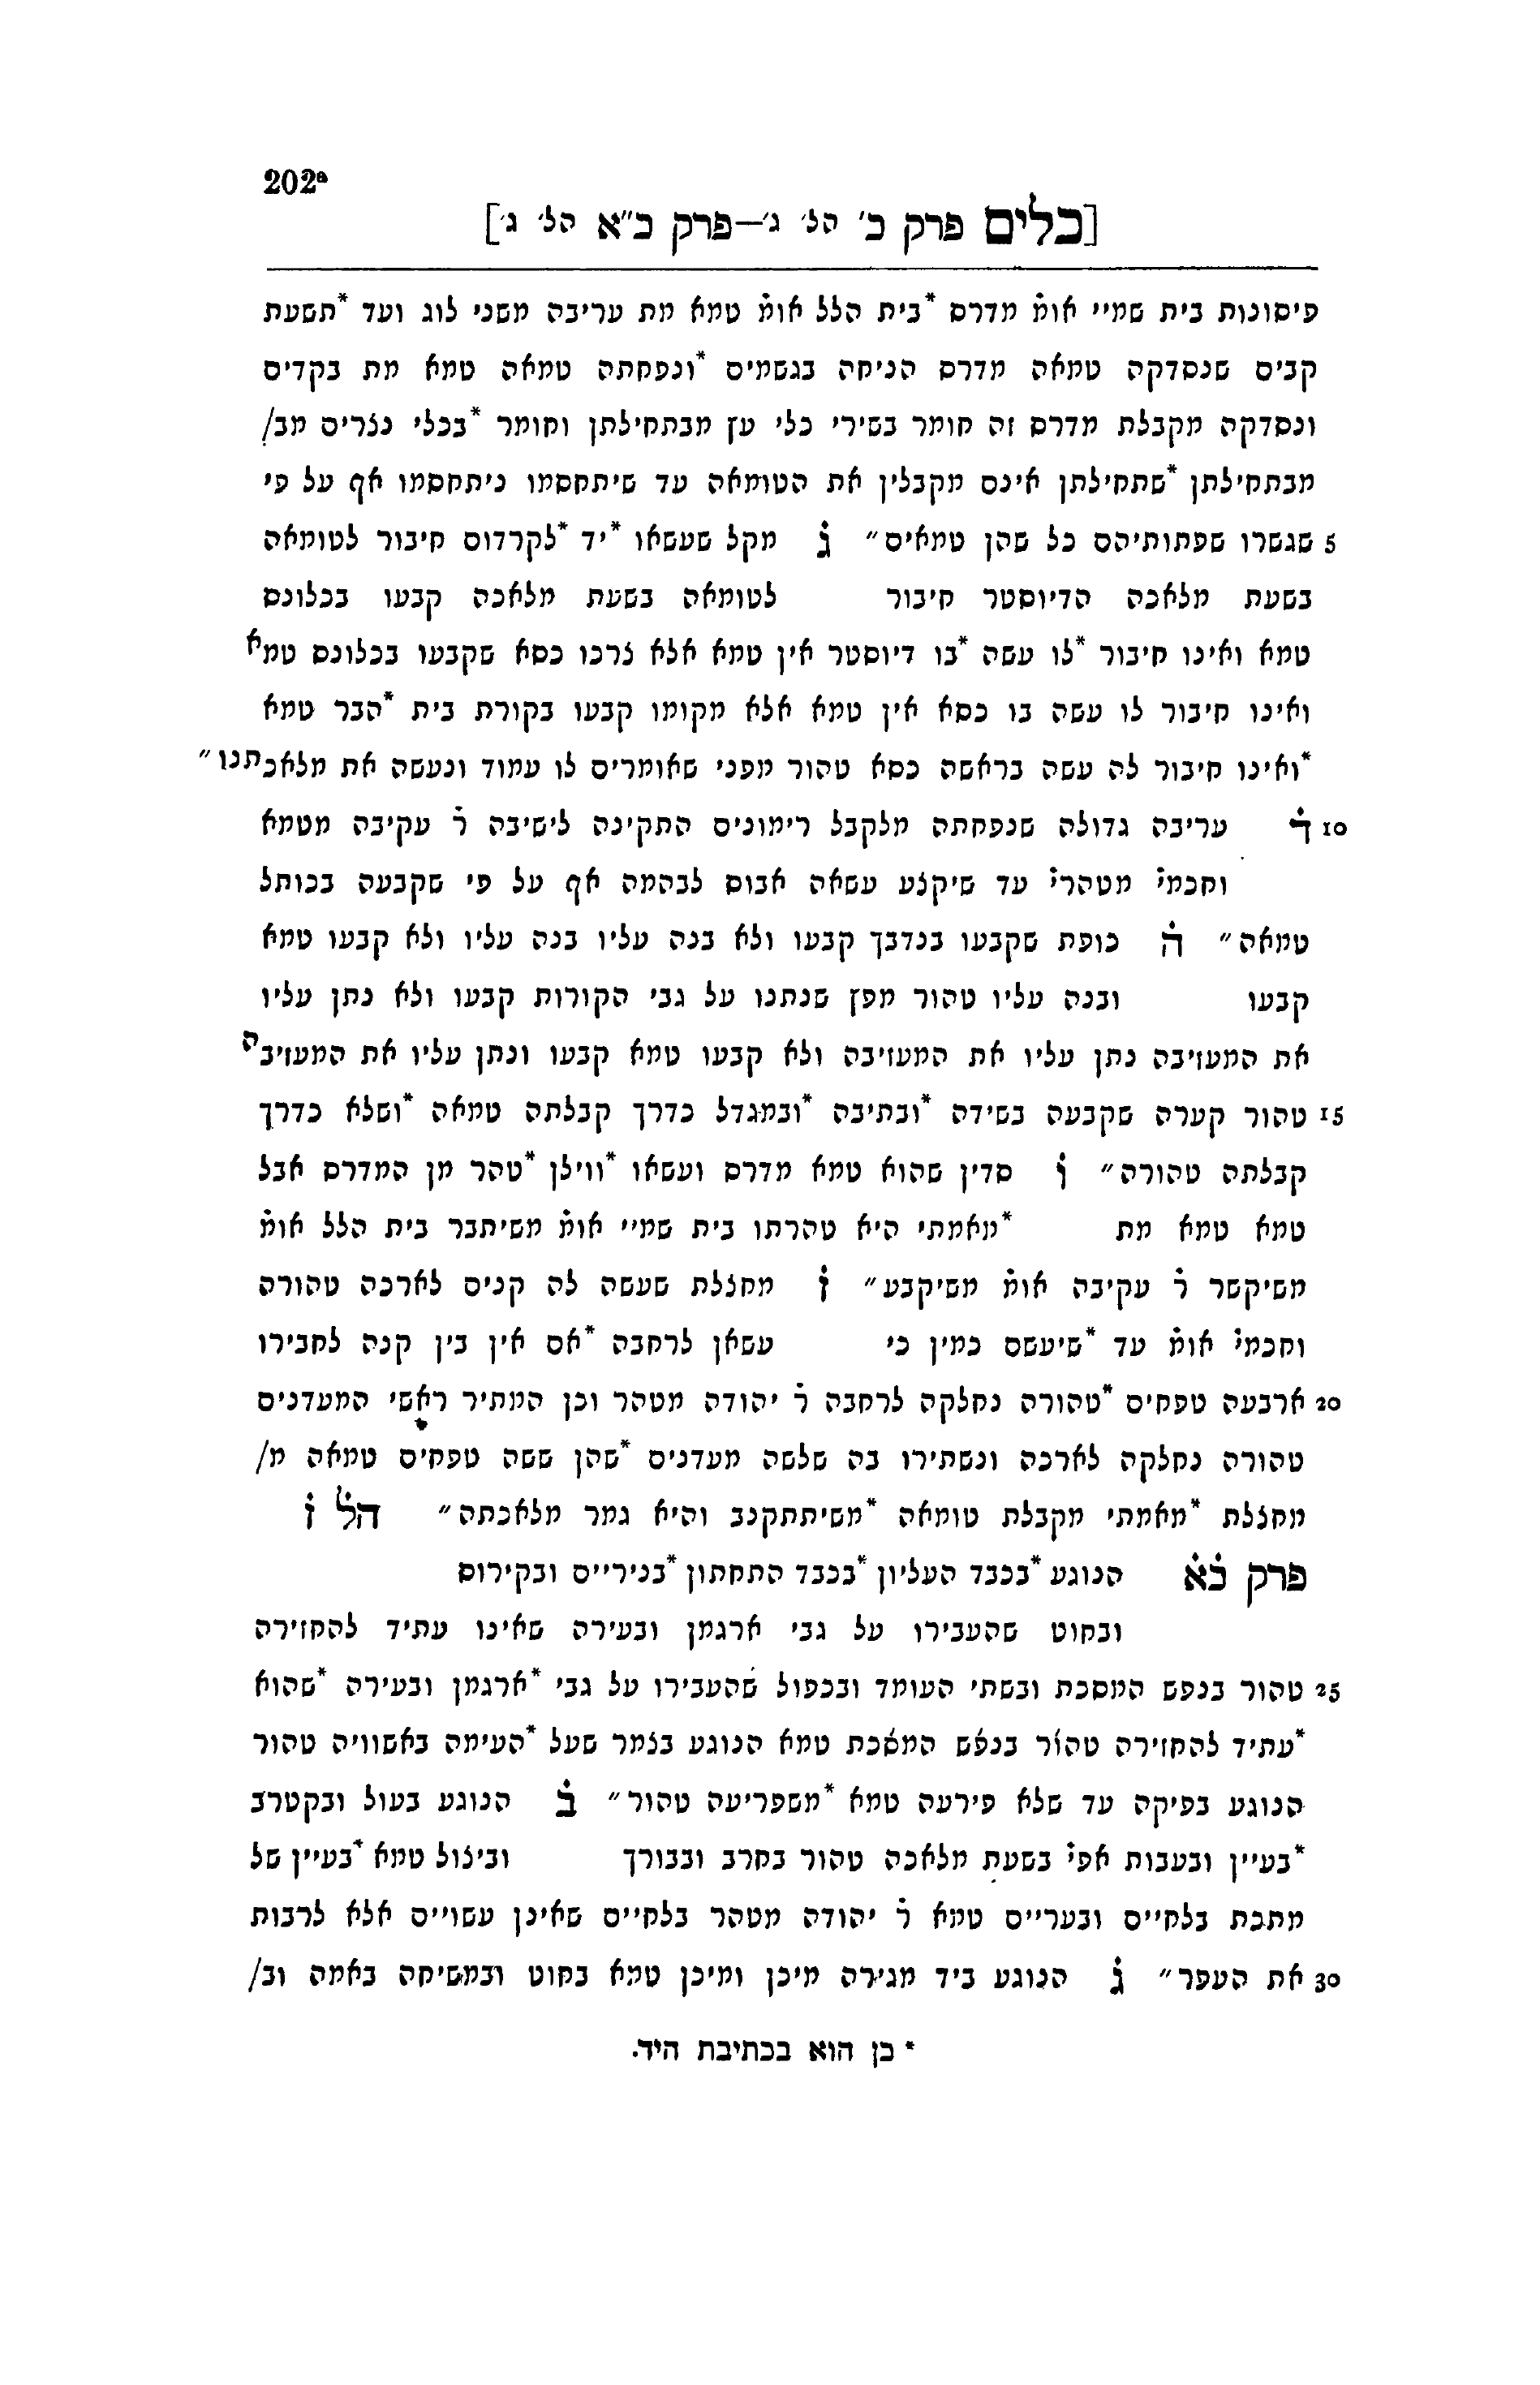 202a
[כלים פרק כ' הל' ג'—פרק כ"א הל' ג']
פיסונות בית שמיי אומ̇ מדרס *בית הלל אומ̇ טמא מת עריבה משני לוג ועד *תשעת
קבים שנסדקה טמאה מדרס הניחה בגשמים *ונפחתה טמאה טמא מת בקדים
ונסדקה מקבלת מדרס זה חומר בשירי כלי עץ מבתחילתן וחומר *בכלי נצרים מב/
מבתחילתן *שתחילתן אינם מקבלין את הטומאה עד שיתחסמו ניתחסמו אף על פי
5 שגשרו שפתותיהם כל שהן טמאים״ ג̇ מקל שעשאו *יד *לקרדום חיבור לטומאה
בשעת מלאכה הדיוסטר חיבור לטומאה בשעת מלאכה קבעו בכלונס
טמא ואינו חיבור *לו עשה *בו דיוסטר אין טמא אלא צרכו כסא שקבעו בכלונס טמא
ואינו חיבור לו עשה בו כסא אין טמא אלא מקומו קבעו בקורת בית *הבר טמא
*ואינו חיבור לה עשה בראשה כסא טהור מפני שאומרים לו עמוד ונעשה את מלאכתנו״
10 ד̇ עריבה גדולה שנפחתה מלקבל רימונים התקינה לישיבה ר̇ עקיבה מטמא
וחכמי̇ מטהרי̇ עד שיקצע עשאה אבוס לבהמה אף על פי שקבעה בכותל
טמאה״ ה̇ כופת שקבעו בנדבך קבעו ולא בנה עליו בנה עליו ולא קבעו טמא
קבעו ובנה עליו טהור מפץ שנתנו על גבי הקורות קבעו ולא נתן עליו
את המעזיבה נתן עליו את המעזיבה ולא קבעו טמא קבעו ונתן עליו את המעזיבה
15 טהור קערה שקבעה בשידה *ובתיבה *ובמגדל כדרך קבלתה טמאה *ושלא כדרך
קבלתה טהורה״ ו̇ סדין שהוא טמא מדרס ועשאו *ווילן *טהר מן המדרס אבל
טמא טמא מת *מאמתי היא טהרתו בית שמיי אומ̇ משיתבר בית הלל אומ̇
משיקשר ר̇ עקיבה אומ̇ משיקבע״ ז̇ מחצלת שעשה לה קנים לארכה טהורה
וחכמי̇ אומ̇ עד *שיעשם כמין כי עשאן לרחבה *אם אין בין קנה לחבירו
20 ארבעה טפחים *טהורה נחלקה לרחבה ר̇ יהודה מטהר וכן המתיר ראשי המעדנים
טהורה נחלקה לארכה ונשתירו בה שלשה מעדנים *שהן ששה טפחים טמאה מ/
מחצלת *מאמתי מקבלת טומאה *משיתתקנב והיא גמר מלאכתה״ הל̇ ז̇
פרק כ̇א̇ הנוגע *בכבד העליון *בכבד התחתון *בנירייס ובקירוס
ובחוט שהעבירו על גבי ארגמן ובעירה שאינו עתיד להחזירה
25 טהור בנפש המסכת ובשתי העומד ובכפול שהעבירו על גבי *ארגמן ובעירה *שהוא
*עתיד להחזירה טהור בנפש המסכת טמא הנוגע בצמר שעל *העימה באשוויה טהור
הנוגע בפיקה עד שלא פירעה טמא *משפריעה טהור״ ב̇ הנוגע בעול ובקטרב
*בעיין ובעבות אפי̇ בשעת מלאכה טהור בחרב ובבורך וביצול טמא *בעיין של
מתכת בלחיים ובעריים טמא ר̇ יהודה מטהר בלחיים שאינן עשויים אלא לרבות
30 את העפר״ ג̇ הנוגע ביד מגירה מיכן ומיכן טמא בחוט ובמשיחה באמה וב/
* כן הוא בכתיבת היד.